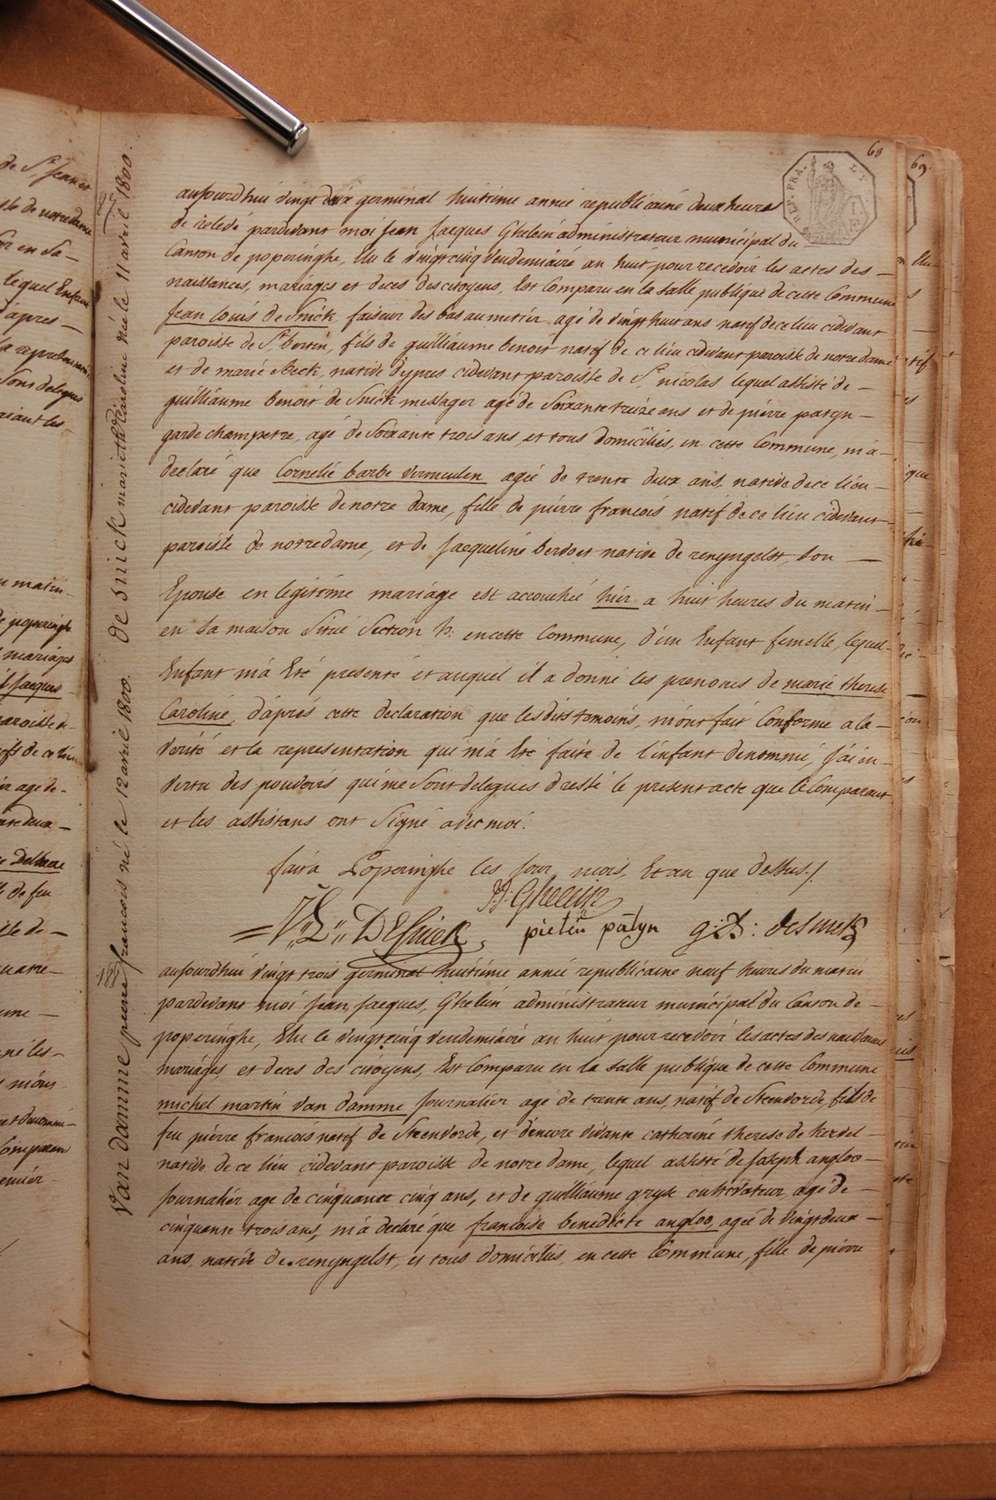 68
69
REP. FRA.
aujourdhui vingt deux germinal huitieme année republicaine deux heures
de relevé pardevant moi Jean Jacques Ghelein administrateur municipal du
Canton de poperinghe, Elu le vingt cinq vendemiaire an huit pour recevoir les actes des –
naissances, mariages et deces des citoyens, Est Comparu en la salle publique de cette Commune
Jean Louis de Snick faiseur des bas au metier agé de vingt huit ans natif de ce lieu cidevant
paroisse de St. bertin, fils de guilliaume benoit natif de ce lieu cidevant paroisse de notre dame
et de marie beck, native d'ypres cidevant paroisse de St. nicolas lequel assisté de –
guilliaume benoit de Snick messager agé de Soixante treize ans et de pierre patyn –
garde champetre, agé de Soixante trois ans et tous domiciliés, en cette Commune, m'a –
declaré que Cornelie barbe vermeulen agée de trente deux ans, native de ce lieu –
cidevant paroisse de notre dame, fille de pierre francois natif de ce lieu cidevant
paroisse de notredame, et de Jacqueline native de renyngelst, Son –
Epouse en legitime mariage est accouchée hier a huit heures du matin –
en Sa maison Situé Section en cette Commune, d'un Enfant femelle, lequel –
Enfant m'a Eté presenté et auquel il a donné les prenoms de marie therese
Caroline, d'aprés cette declaration que les dits temoins, m'ont fait Conforme a la –
verité et la representation qui m'a Eté faite de l'infant denommé, J'ai en –
vertu des pouvoirs qui me Sont delegues dressé le present acte que le Comparant
et les assistans ont Signé avec moi.
fait a Poperinghe les Jour, mois, Et an que dessus./.
J.J. Ghelein
DESnick pieter patyn desnick
aujourdhui vingt trois germinal huitieme année republicaine neuf heures du matin
pardevant moi Jean Jacques, Ghelein administrateur municipal du Canton de –
poperinghe, Elu le vingt cinq vendemiaire an huit pour recevoir les actes des naissances
mariages et deces des citoyens, Est Comparu en la Salle publique de cette Commune
michel martin Van damme Journalier agé de trente ans, natif de Steenvorde, fils de
feu pierre francois natif de Steenvorde, et d'encore vivante catherine therese de –
native de ce lieu cidevant paroisse de notre dame, lequel assisté de Joseph angloo –
Journalier age de cinquante cinq ans, et de guilliaume gryse cultivateur agé de –
cinquante trois ans, m'a declaré que francoise benedicte angloo, agée de vingt deux –
ans, native de renyngelst, et tous domiciliés, en cette Commune, fille de pierre
de Snick marie th. Caroline née le 11 avril 1800.
Van damme pierre francois né le 12 avril 1800.
de St. Jean et
de notredame
lequel Enfant
d'apres –
Sont delegues
matin –
mariages
Jacques